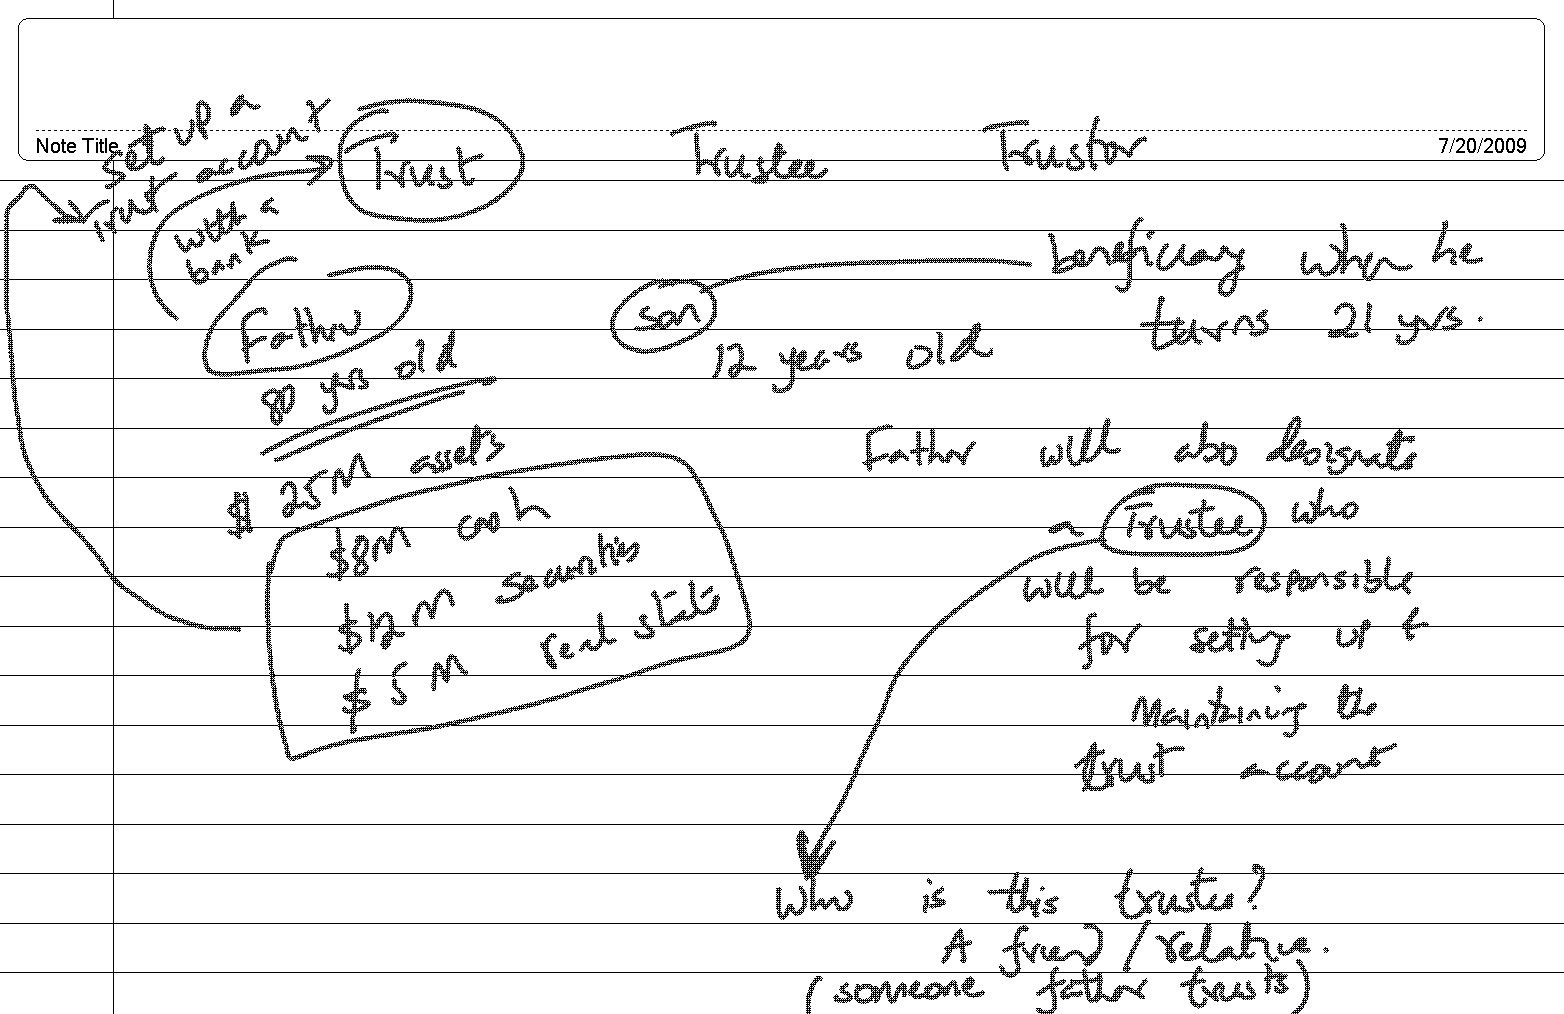 Note Title
7/20/2009
set up a
trust account
with a
bank
Trust Trustee Trustor
Father
80 yrs old
$ 25M assets
$8M cash
$12M securities
$5M real state
son
12 years old
beneficiary when he
turns 21 yrs.
Father will also designate
a Trustee who
will be responsible
for setting up &
Maintaining the
trust account
Who is this trustee?
A friend / relative.
(someone father trusts)